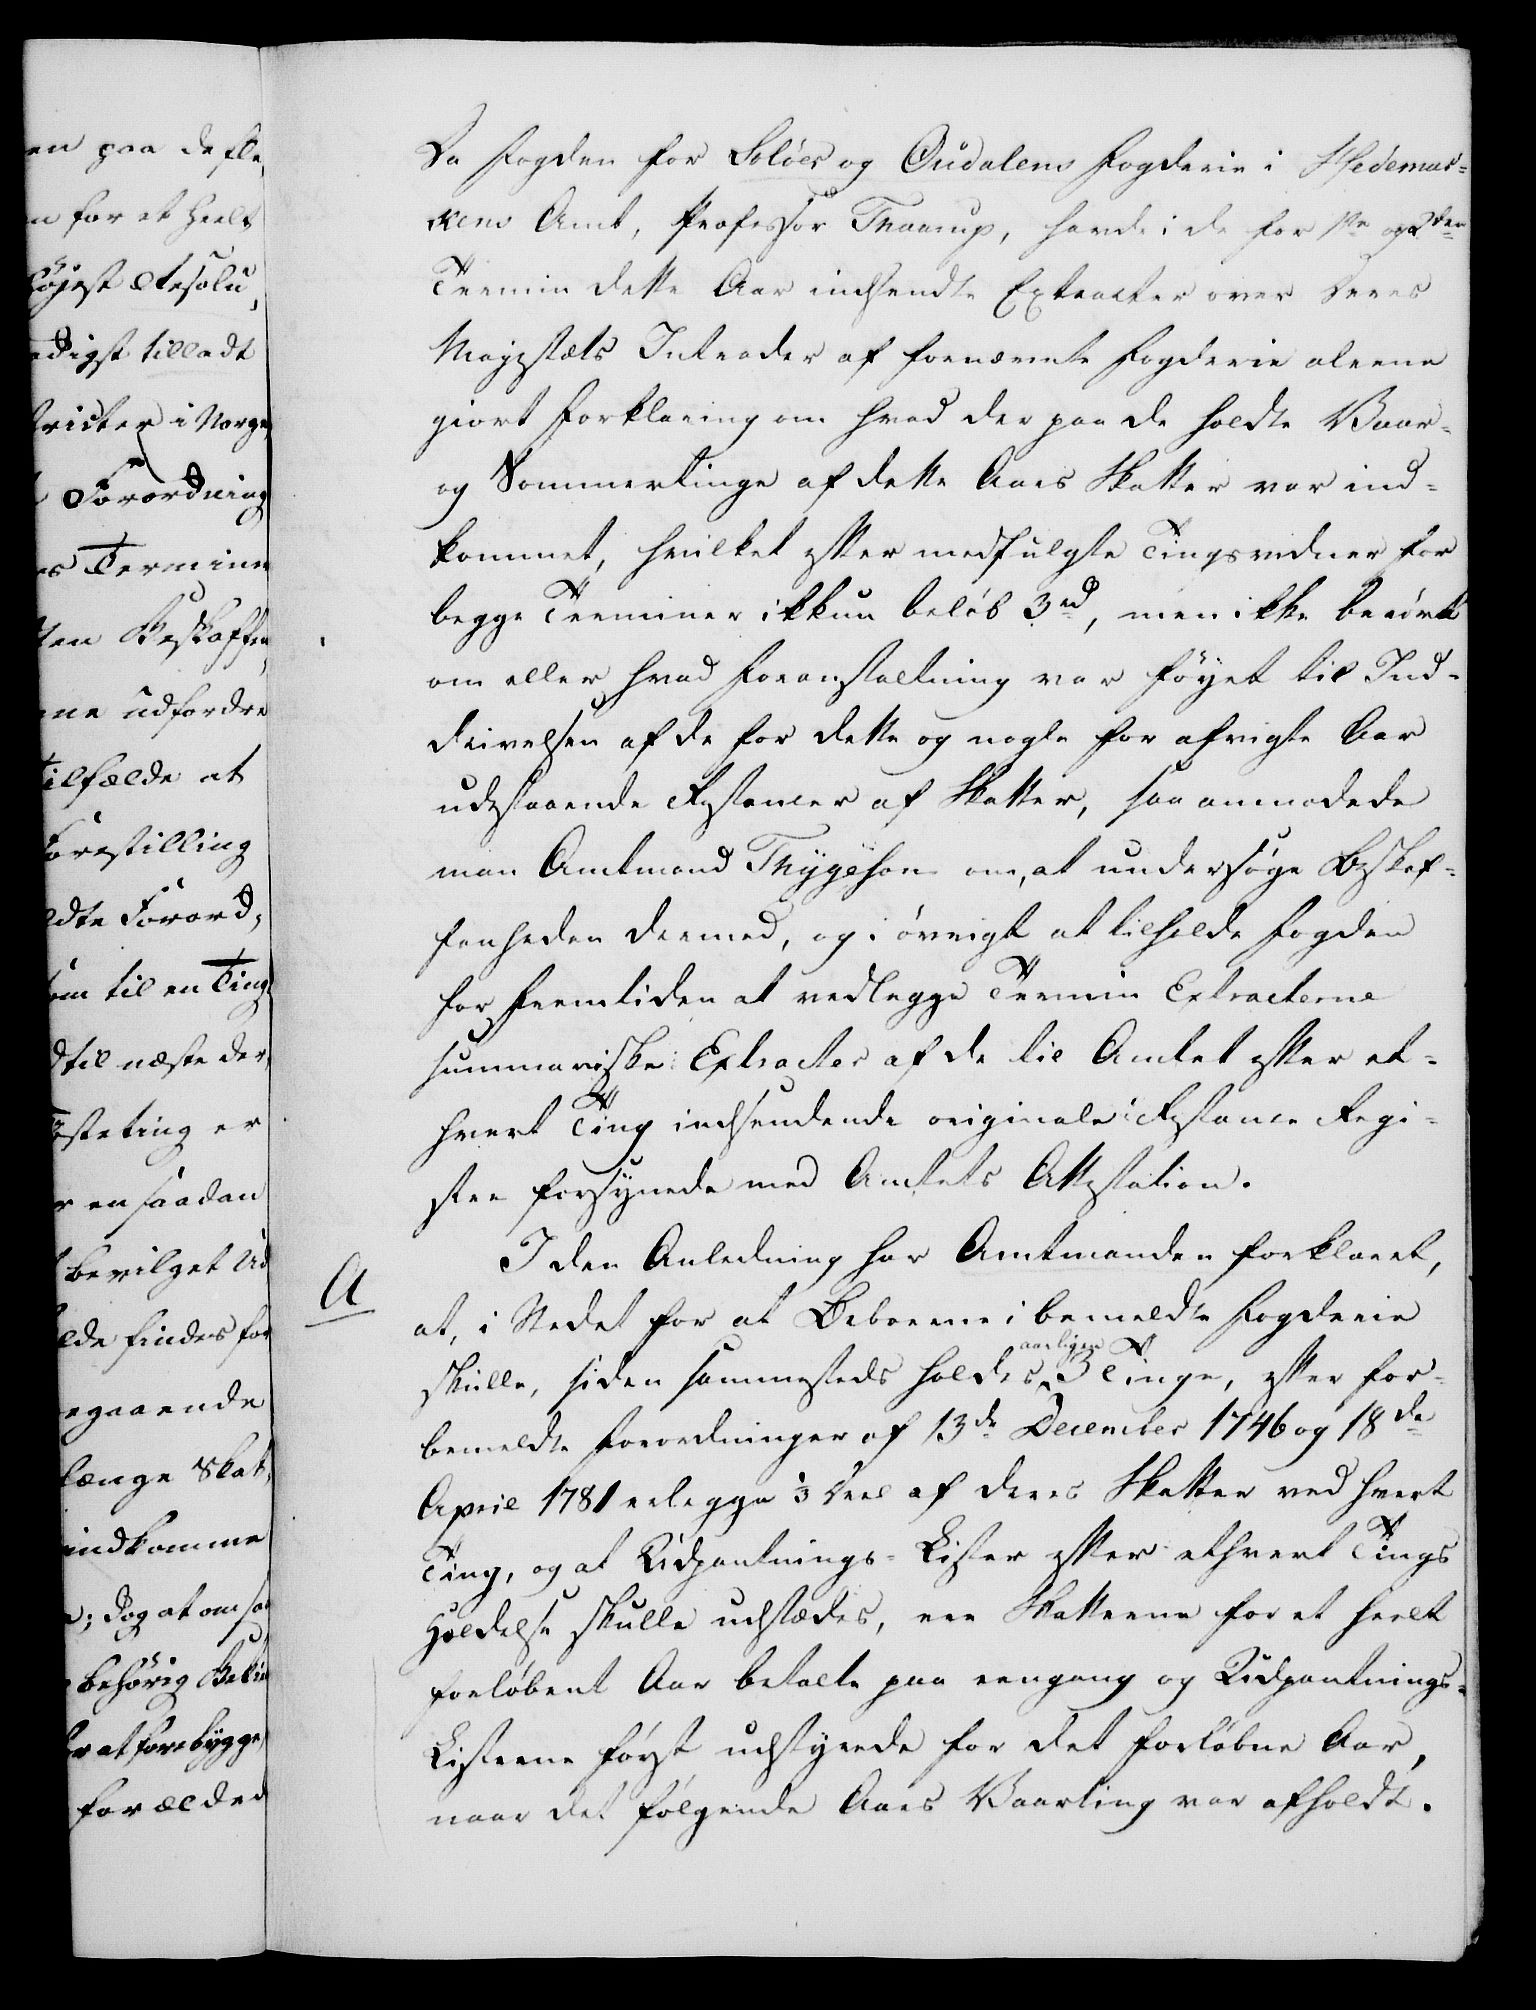 en paa de fle,
n for et heelt
höjest Resolu,
adigst tilladt
tricter i Norge,
Forordning
es Terminn
ten Beskaffen,
ne udfordre
ilfælde at
orestilling
ldte Forord,
om til en Ting,
dtil næste der,
östeting er
r en saadan
bevilget Ud
lde findes for
egaaende
længe Skat,
indkomme
; dog at om saa
behörig Bekie
r at forebygge,
forælded
Da Fogden for Solöer og Oudalens Fogderie i Hedemar-
kens Amt, Professor Thaarup, havde i de for 1te og 2den
Termin dette Aar indsendte Extracter over Deres
Majestæts Intrader af fornævnte Fogderie aleene
giort Forklaring om hvad der paa de holdte Vaar-
og Sommertinge af dette Aars Skatter var ind-
kommet, hvilket efter medfulgte Tingsvidner for
begge Terminer ikkun belöb 3 rd, men ikke berört
om eller hvad Foranstaltning var föyet til Ind-
drivelsen af de for dette og nogle for afvigte Aar
udestaaende Restancer af Skatter, saa anmodede
man Amtmand Thygeson om, at undersöge Beskaf-
fenheden dermed, og i övrigt at tilholde Fogden
for Fremtiden at vedlegge Termin Extracterne
summariske Extracter af de til Amtet efter et-
hvert Ting indsendende originale Restance Regi-
stre forsynede med Amtets Attestation.
A
I den Anledning har Amtmanden forklaret,
at, i Stedet for at Beboerne i bemeldte Fogderie
skulle, siden sammesteds holdes aarligen 3 Tinge, efter for-
bemeldte Forordninger af 13de December 1746 og 18de
April 1781 erlegge 1/3 Deel af deres Skatter ved hvert
Ting, og at Udpantnings-Lister efter ethvert Tings
Holdelse skulle udstædes, ere Skatterne for et heelt
forlöbent Aar betalte paa eengang og Udpantnings-
Listerne först udstyrede for det forlöbne Aar,
naar det fölgende Aars Vaarting var afholdt.